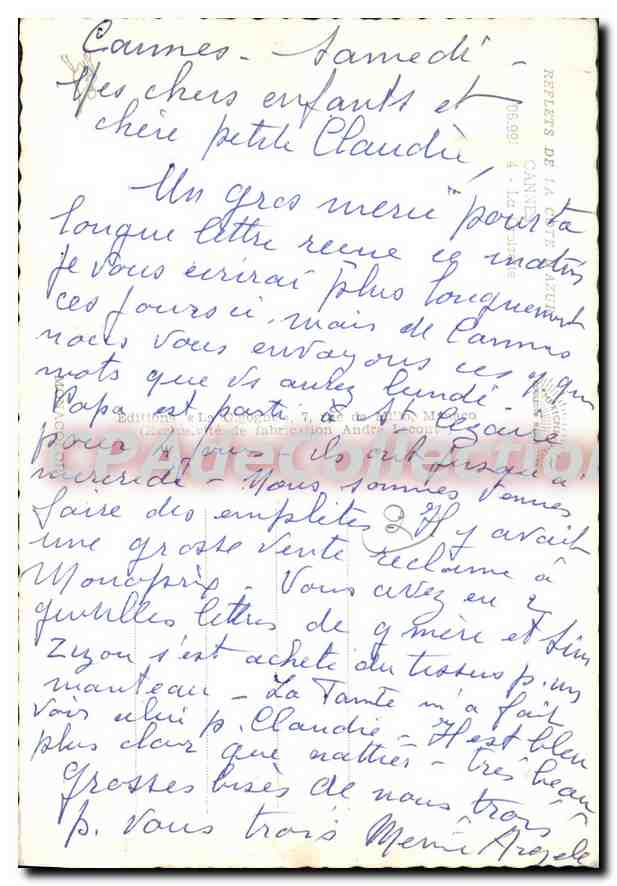 Cannes - Samedi -
Mes chers enfants et
chère petite Claudie,
Un gros merci pour ta
longue lettre reçue ce matin
je vous écrirai plus longuement
ces jours ci, mais de Cannes
nous vous envoyons ces qqus
mots que vs aurez lundi -
Papa est parti à
pour jours - ils ont jusqu'à
mercredi - Nous sommes venues
faire des emplètes. Il y avait
une grosse vente réclame à
Monoprix - Vous avez eu 2
gentilles lettres de g mère et
Zizou s'est acheté du tissus p. un
manteau - La Tante m'a fait
voir celui p. Claudie - Il est bleu
plus clair que nattier - très beau
grosses bises de nous trois
p. vous trois
REFLETS DE LA COTE D'AZUR
CANNES
06.99: 4 - La
Editions « La Cigogne », 7, Monaco
fabrication André Leconte
CPADeCollection